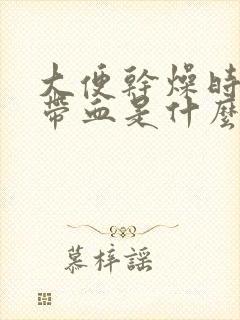 大便幹燥時
帶血是什麼
慕梓謡